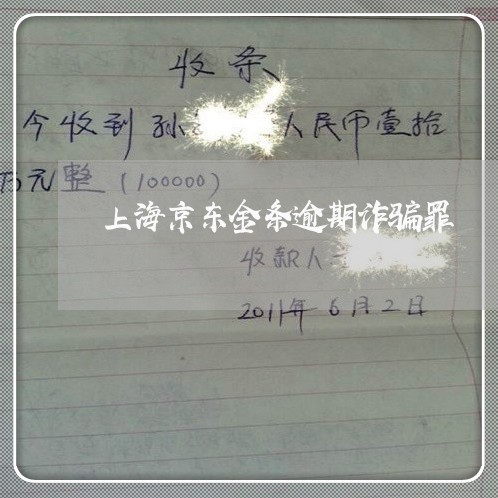 收条
今收到孙 人民币壹拾
万元整(100000)
上海京东金条逾期诈骗罪
收款人
2011年6月2日